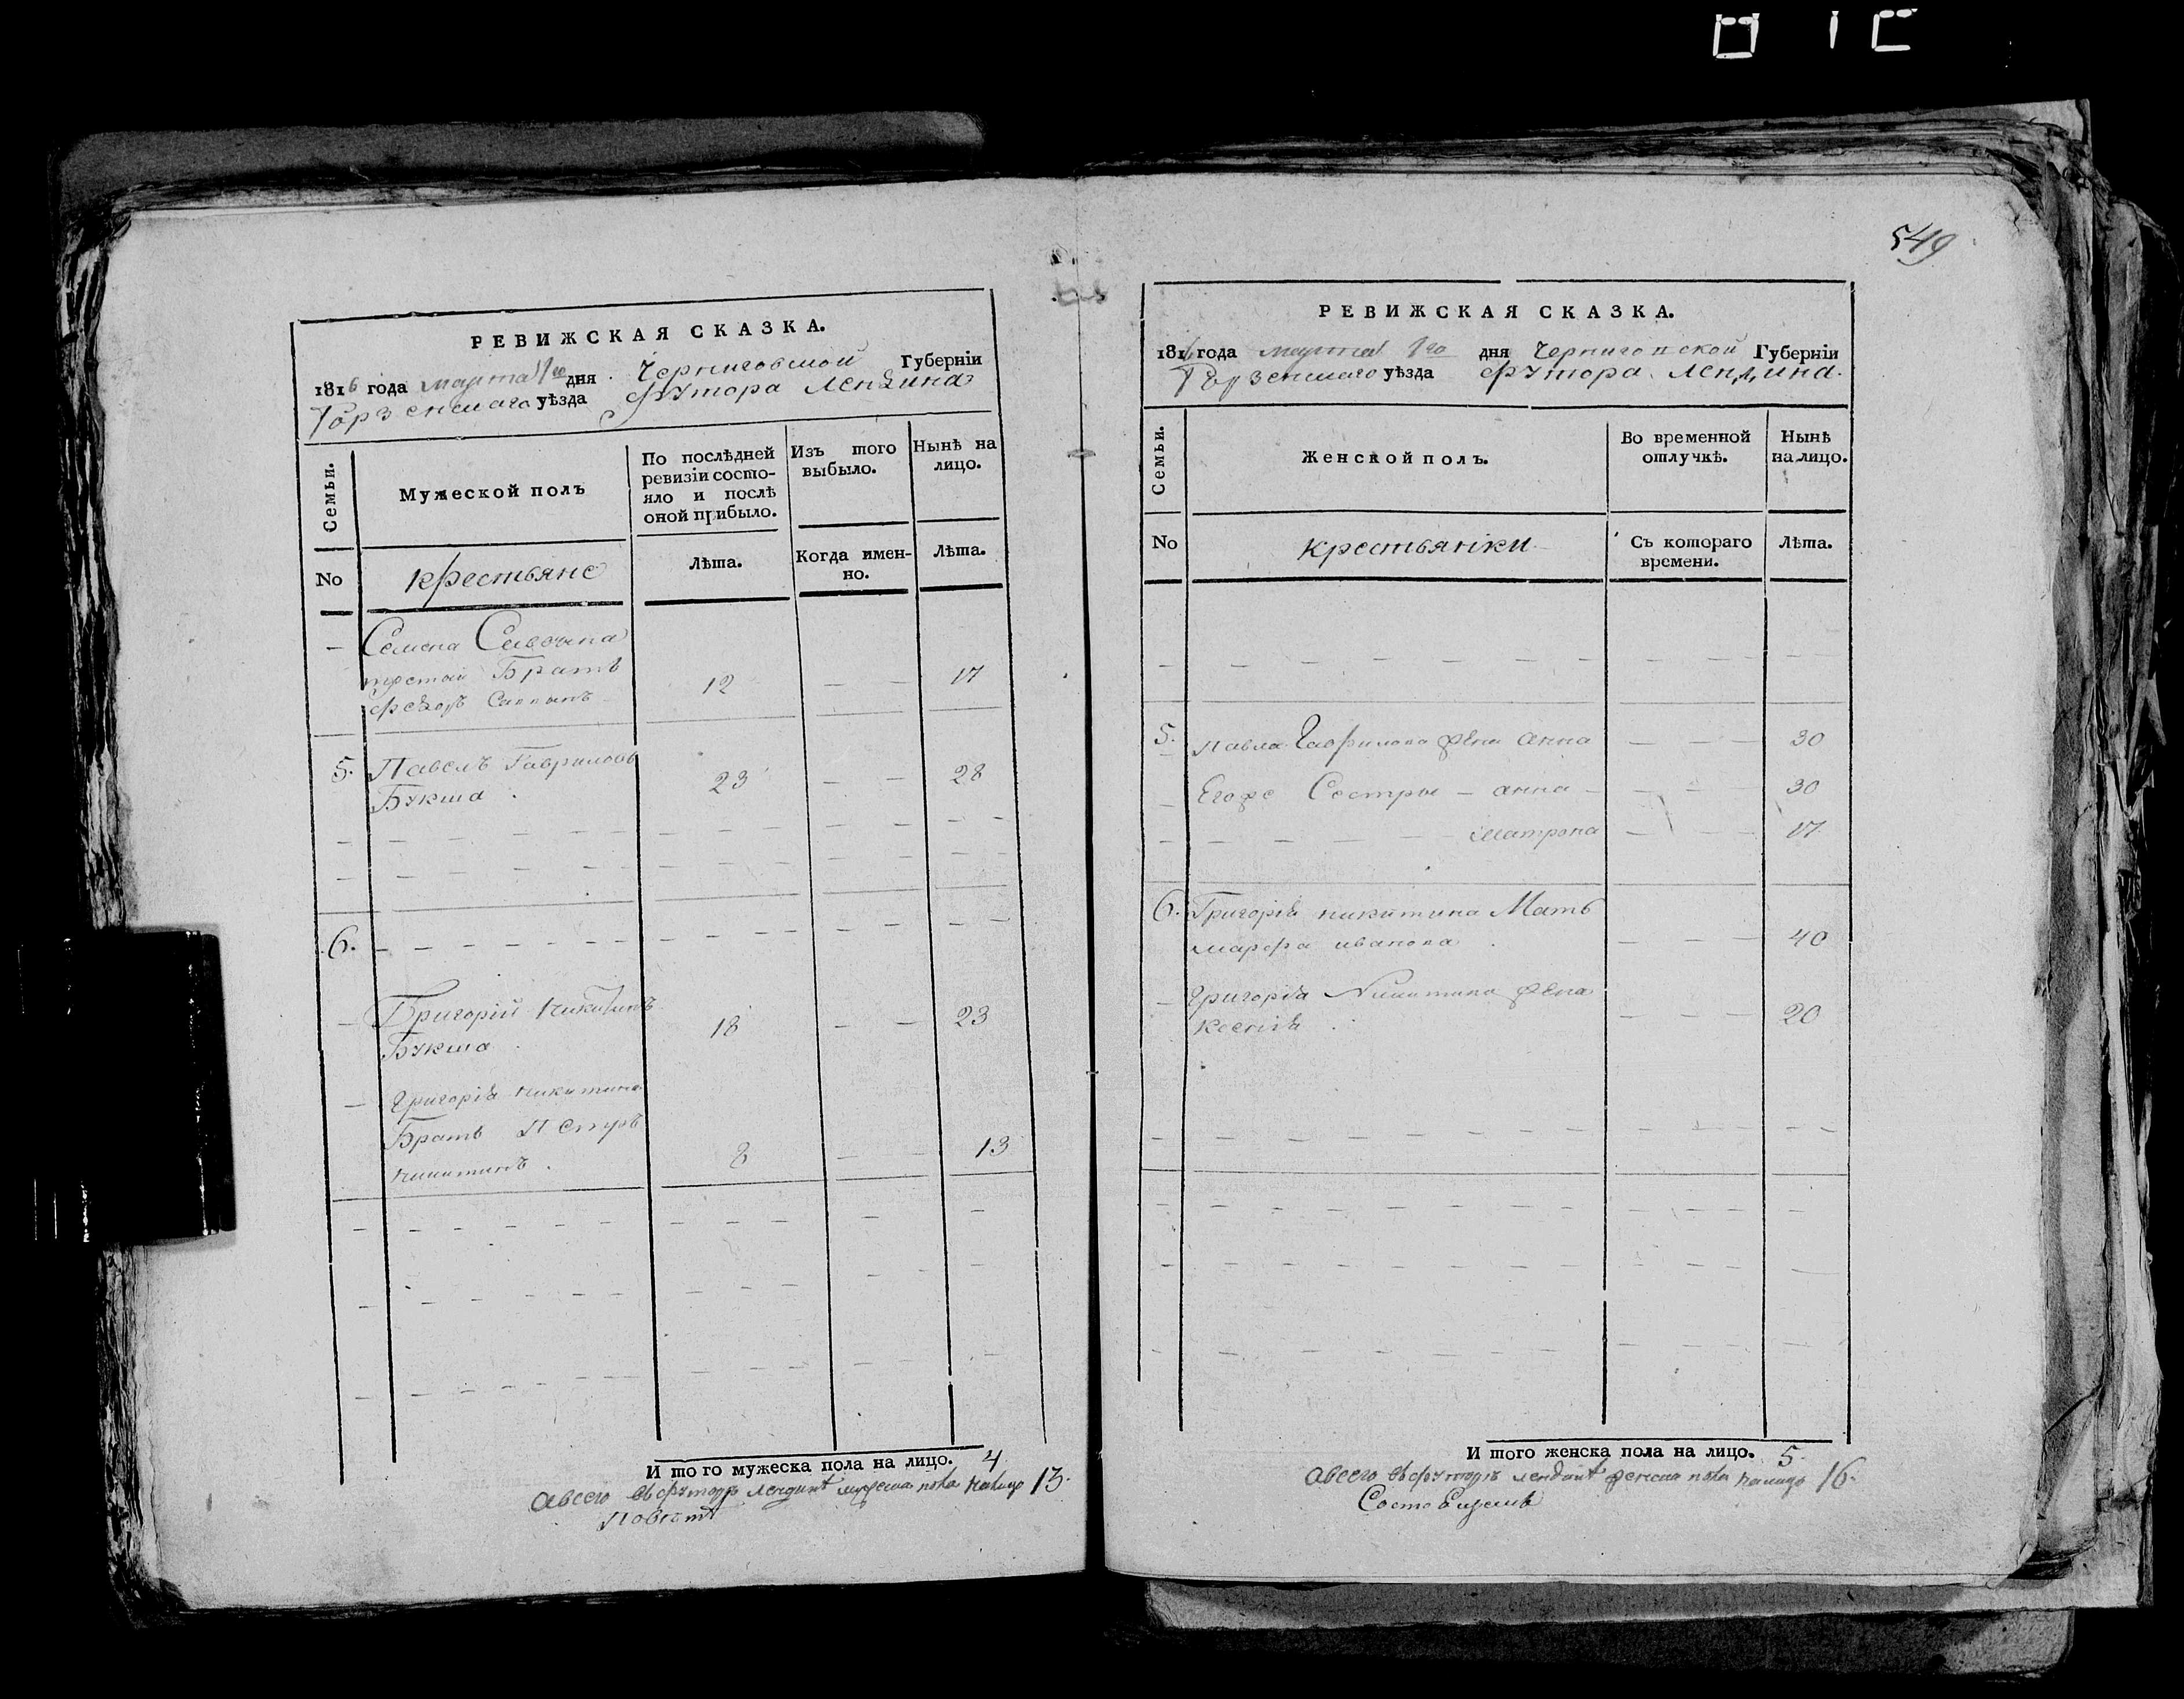 549
РЕВИЖСКАЯ СКАЗКА.
1816 года марта 1го дня Черниговской Губерніи
уѣзда футора Лендина
Семьи.
Мужеской полъ
По послѣдней ревизіи состояло и послѣ оной прибыло.
Изъ того выбыло.
Нынѣ на лицо.
No
крестьяне
Лѣта.
Когда именно.
Лѣта.
— Семена
третій Братъ
12 — — 17
5. Павелъ Гавриловъ
Букша 23 — — 28
6.
— Григорій Никитинъ
Букша 18 — — 23
— Григорія Никитина
Братъ Петръ
Никитинъ 8 — — 13
И того мужеска пола на лицо. 4
авсего въ футоре Лендинѣ мужеска пола налицо 13.
РЕВИЖСКАЯ СКАЗКА.
1816 года марта 1го дня Черниговской Губерніи
уѣзда футора Лендина.
Семьи.
Женской полъ.
Во временной отлучкѣ.
Нынѣ на лицо.
No
крестьянки
Съ котораго времени.
Лѣта.
5. Павла Гаврилова жена анна — — — 30
Егоже Сестры – анна – — — — 30
Матрона — — — 17
6. Григорія никитина Мать
марфа иванова — — — 40
— Григорія Никитина жена
Ксенія — — — 20
И того женска пола на лицо. 5.
авсего въ футоре лендинѣ женска пола налицо 16.